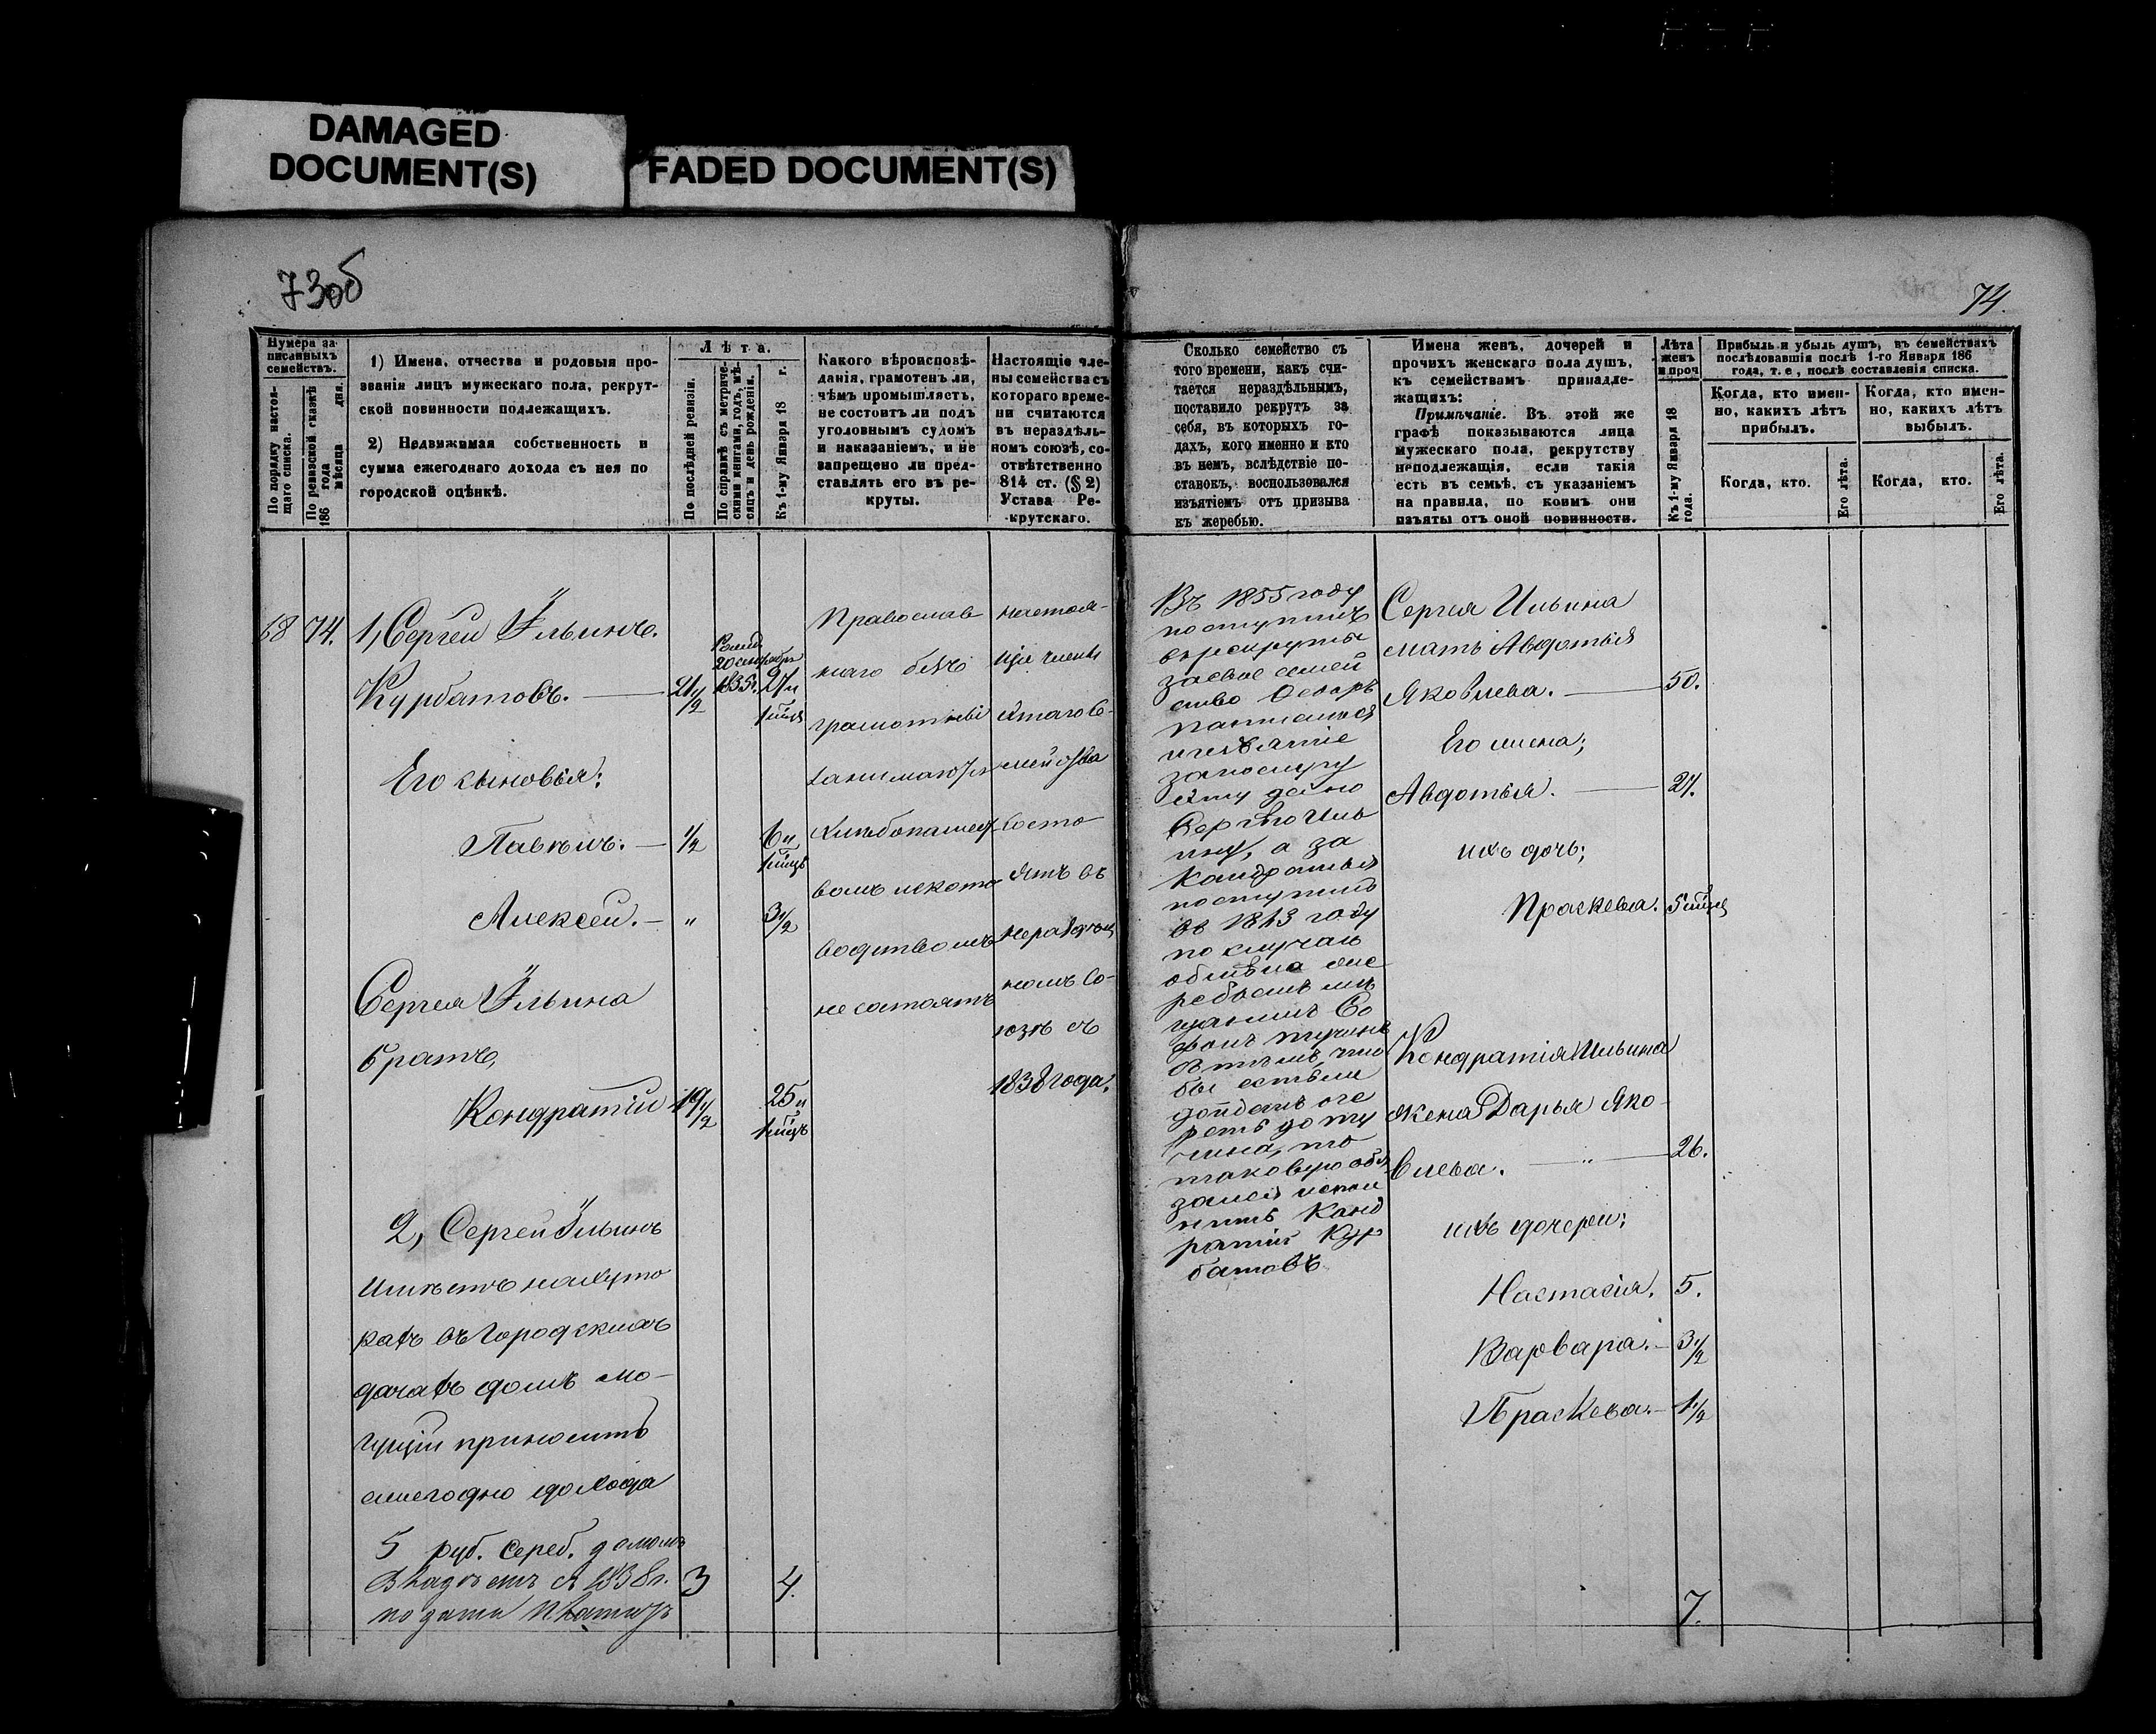 DAMAGED
DOCUMENT(S)
FADED DOCUMENT(S)
73об
74.
Нумера за
писанныхъ
семействъ.
По порядку настоя-
щаго списка.
По ревизской сказкѣ
186 года мѣсяца дня.
1) Имена, отчества и родовыя про-
званія лицъ мужескаго пола, рекрут-
ской повинности подлежащихъ.
2) Недвижимая собственность и
сумма ежегоднаго дохода съ нея по
городской оцѣнкѣ.
Лѣта.
По послѣдней ревизіи.
По справкѣ съ метриче-
скими книгами, годъ, мѣ-
сяцъ и день рожденія.
Къ 1-му Января 18 г.
Какого вѣроисповѣ-
данія, грамотенъ ли,
чѣмъ промышляетъ,
не состоитъ ли подъ
уголовнымъ судомъ
и наказаніемъ, и не
запрещено ли пред-
ставлять его въ ре-
круты.
Настоящіе чле-
ны семейства съ
котораго време-
ни считаются
въ нераздѣль-
номъ союзѣ, со-
отвѣтственно
814 ст. (§ 2)
Устава Ре-
крутскаго.
Сколько семейство съ
того времени, какъ счи-
тается нераздѣльнымъ,
поставило рекрутъ за
себя, въ которыхъ го-
дахъ, кого именно и кто
въ немъ, вслѣдствіе по-
ставокъ, воспользовался
изъятіемъ отъ призыва
къ жеребью.
Имена женъ, дочерей и
прочихъ женскаго пола душъ,
къ семействамъ принадле-
жащихъ:
Примѣчаніе. Въ этой же
графѣ показываются лица
мужескаго пола, рекрутству
неподлежащія, если такія
есть въ семьѣ, съ указаніемъ
на правила, по коимъ они
изъяты отъ оной повинности.
Лѣта
женъ
и проч
Къ 1-му Января 18
года.
Прибыль и убыль душъ, въ семействахъ
послѣдовавшія послѣ 1-го Января 186
года, т. е, послѣ составленія списка.
Когда, кто имен-
но, какихъ лѣтъ
прибылъ.
Когда, кто имен-
но, какихъ лѣтъ
выбылъ.
Когда, кто.
Его лѣта.
Когда, кто.
Его лѣта.
68 74. 1, Сергей Ильинъ.
Курбатовъ. — 21 1/2
20 сентября
1835г. 27 и
Его сыновья:
Павелъ. — 1/2 6 и
Алексей. — " 3 1/2
Сергея Ильина
братъ,
Кондратій 19 1/2 25 и
2, Сергей Ильинъ
имѣетъ на хуто
рахъ въ городскихъ
дачахъ домъ мо-
гущій приносить
ежегодно дохода
5 руб. сереб. домомъ
владѣетъ съ 1838 г.
подати платитъ
3 4.
Православ
наго
грамотные
занимаются
хлебопашест
вомъ ското
водствомъ
не состоятъ
настоя-
щіе члены
этаго се-
мейства
состо
ятъ въ
нераздель
номъ со-
юзѣ съ
1838 года.
Въ 1855 году
поступилъ
въ рекруты
за свое семей
ство
изъятіе
Сергею Иль
ину, а за
Кондратья
поступилъ
въ 1843 году
по случаю
обмена же
ребьемъ
бы
реть до
чина, то
таковую обя
занъ испол
нить Конд
ратій Кур
батовъ
Сергея Ильина
мать Авдотья
Яковлева. — 50.
Его жена;
Авдотья. — 27.
ихъ дочь;
Праскева.
Кондратія Ильина
жена Дарья Яко-
влева. — " — 26.
ихъ дочери;
Настасія. 5.
Варвара. — 3 1/2
Праскева. — 1 1/2
7.